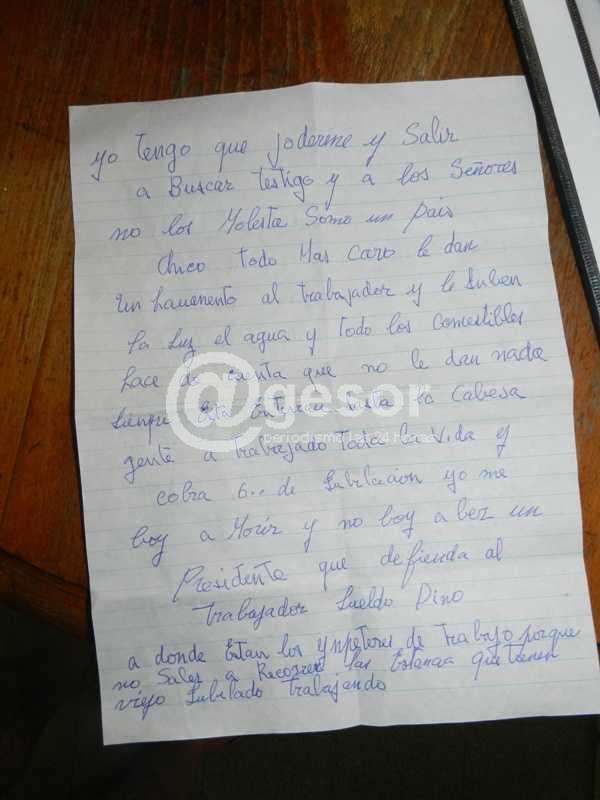 yo Tengo que joderme y Salir
a Buscar Testigo y a los Señores
no los Molesta Somo un pais
Chico Todo Mas Caro le dan
Un haumento al trabajador y le Suben
la Luz el agua y Todo los Comestibles
hace de cuenta que no le dan nada
Siempre Esta hasta la Cabesa
gente a trabajado Toda la Vida y
cobra 6.. de Jubilacion yo me
boy a Morir y no boy a bez un
Presidente que defienda al
Trabajador Sueldo Dino
a donde Estan los ynpetores de Trabajo porque
no Sales a Recorrer las Estancia que tienen
viejo Jubilado Trabajando
@gesor
periodismo las 24 horas